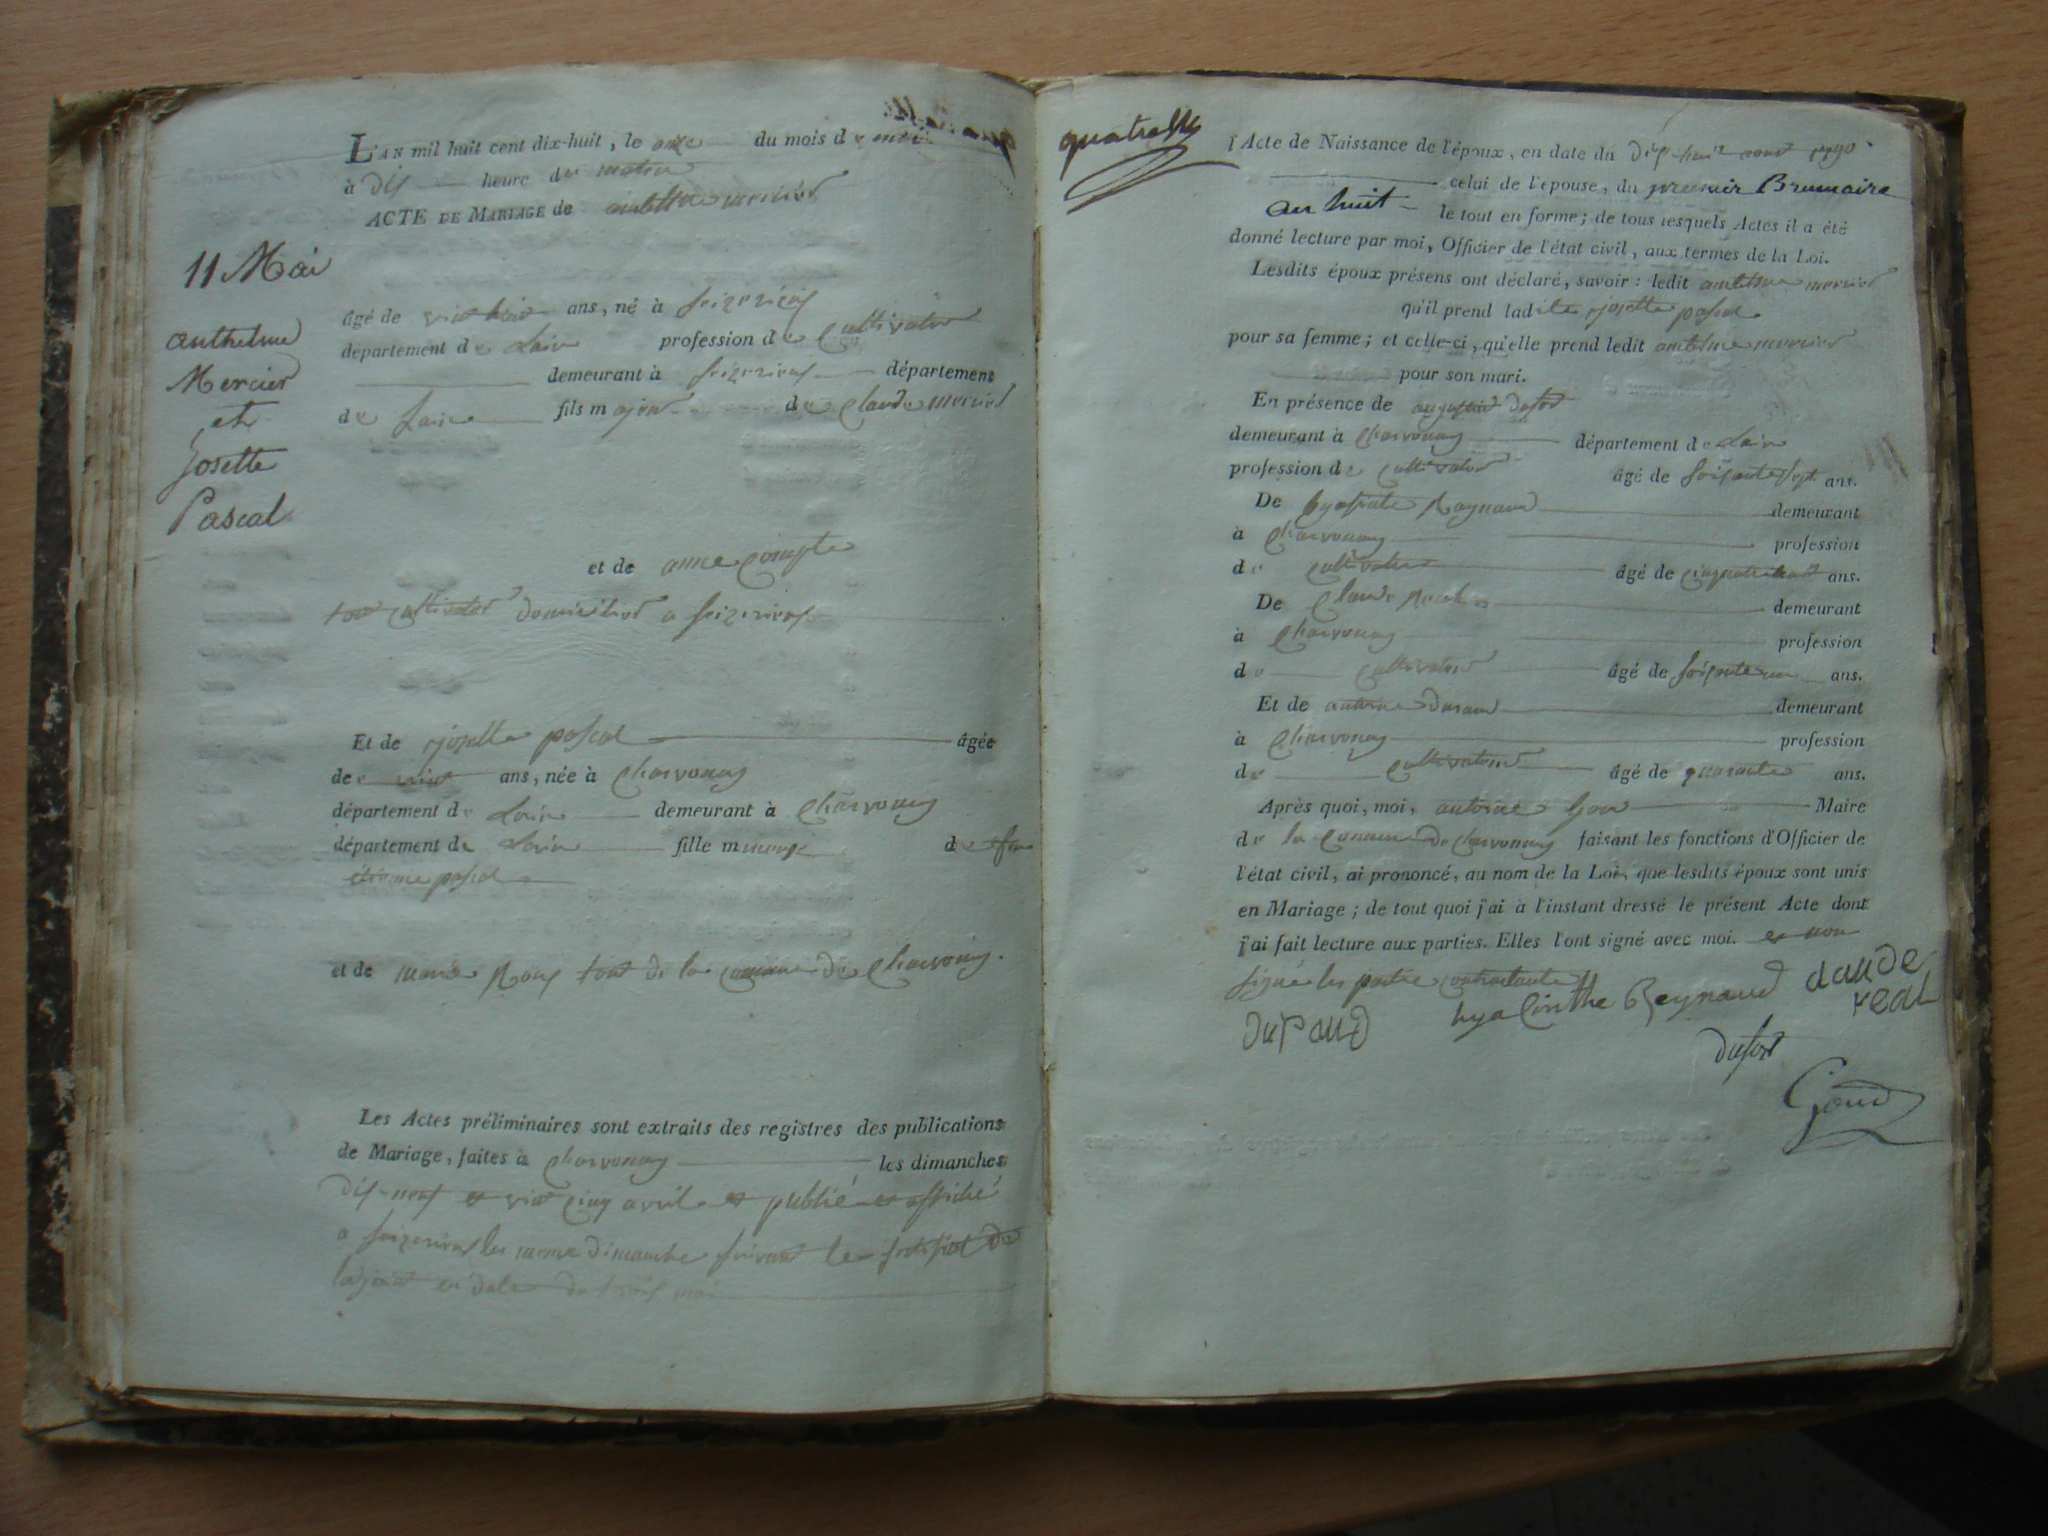 L'AN mil huit cent dix-huit, le onze du mois de mai
à dis heure du matin
ACTE DE MARIAGE de anthelme mercier
11 Mai
anthelme
Mercier
et
Josette
Pascal
âgé de vint huit ans, né à seizerieux
département de Lain profession de Cultivateur
demeurant à seizerieux département
de Lain fils majeur de Claude mercier
et de anne Compte
tous Cultivateur domicilier a seizerieux
Et de josette pascal âgée
de vint ans, née à Charvonay
département de Lain demeurant à Charvonay
département de Lain fille mineure de feu
étienne pascal
et de marie Roux tout de la comune de Charvonay.
Les Actes préliminaires sont extraits des registres des publications
de Mariage, faites à Charvonay les dimanches
dis-neuf et vint cinq avril et publié et affiché
a seizerieux les meme dimanche suivant le sertifiat de
ladjoint en date du trois mai
quatre
l'Acte de Naissance de l'époux, en date du dis-huit aout 1790
celui de l'épouse, du premier Brumaire
an huit le tout en forme; de tous lesquels Actes il a été
donné lecture par moi, Officier de l'état civil, aux termes de la Loi.
Lesdits époux présens ont déclaré, savoir: ledit antelme mercier
qu'il prend ladite josette pascal
pour sa femme; et celle-ci, qu'elle prend ledit antelme mercier
pour son mari.
En présence de augustin dufor
demeurant à Charvonay département de Lain
profession de cultivateur âgé de soisante sept ans.
De hyasinte Raynaud demeurant
à Charvonay profession
de cultivateur âgé de cinquante huit ans.
De Claude demeurant
à Charvonay profession
de cultivateur âgé de soisante un ans.
Et de antoine durand demeurant
à Charvonay profession
de cultivateur âgé de quarante ans.
Après quoi, moi, antoine Maire
de la Comune de Charvonay faisant les fonctions d'Officier de
l'état civil, ai prononcé, au nom de la Loi, que lesdits époux sont unis
en Mariage; de tout quoi j'ai à l'instant dressé le présent Acte dont
j'ai fait lecture aux parties. Elles l'ont signé avec moi. et non
signé les partie contractante
duraud hyacinthe Reynaud claude
real
dufor